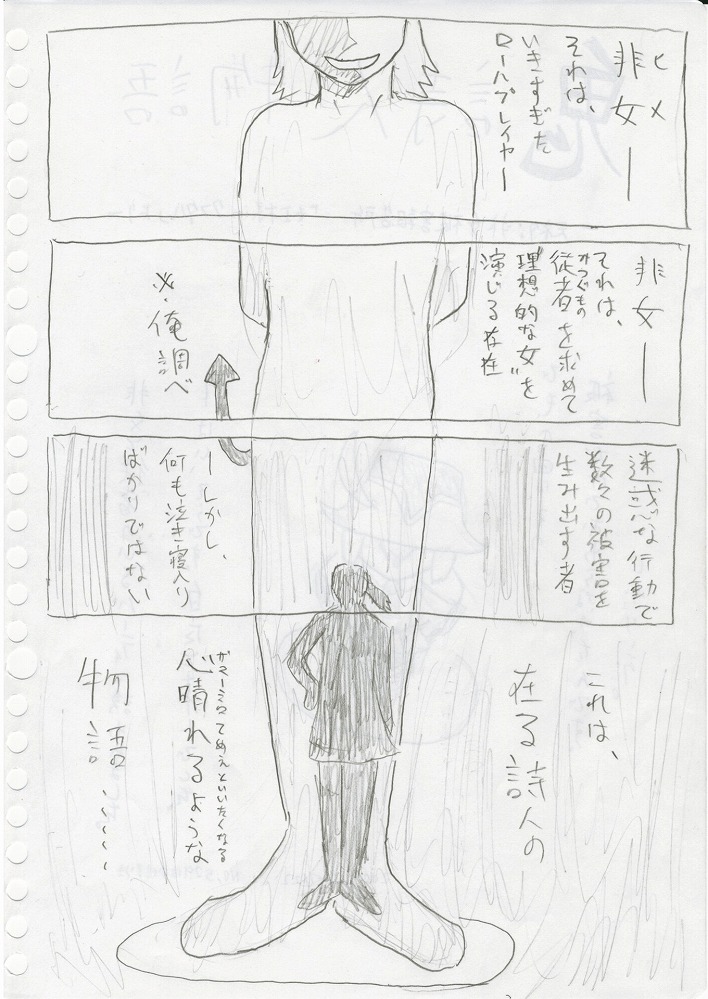 ヒメ
非女ー
それは、
いきすぎた
ロールプレイヤー
非女ー
それは、
みつぐもの
従者を求めて
“理想的な女”を
演じる存在
※俺調べ
迷惑な行動で
数々の被害を
生み出す者
ーしかし、
何も泣き寝入り
ばかりではない
これは、
在る詩人の
ガマーミロてめえといいたくなる
心晴れるような
物語・・・・